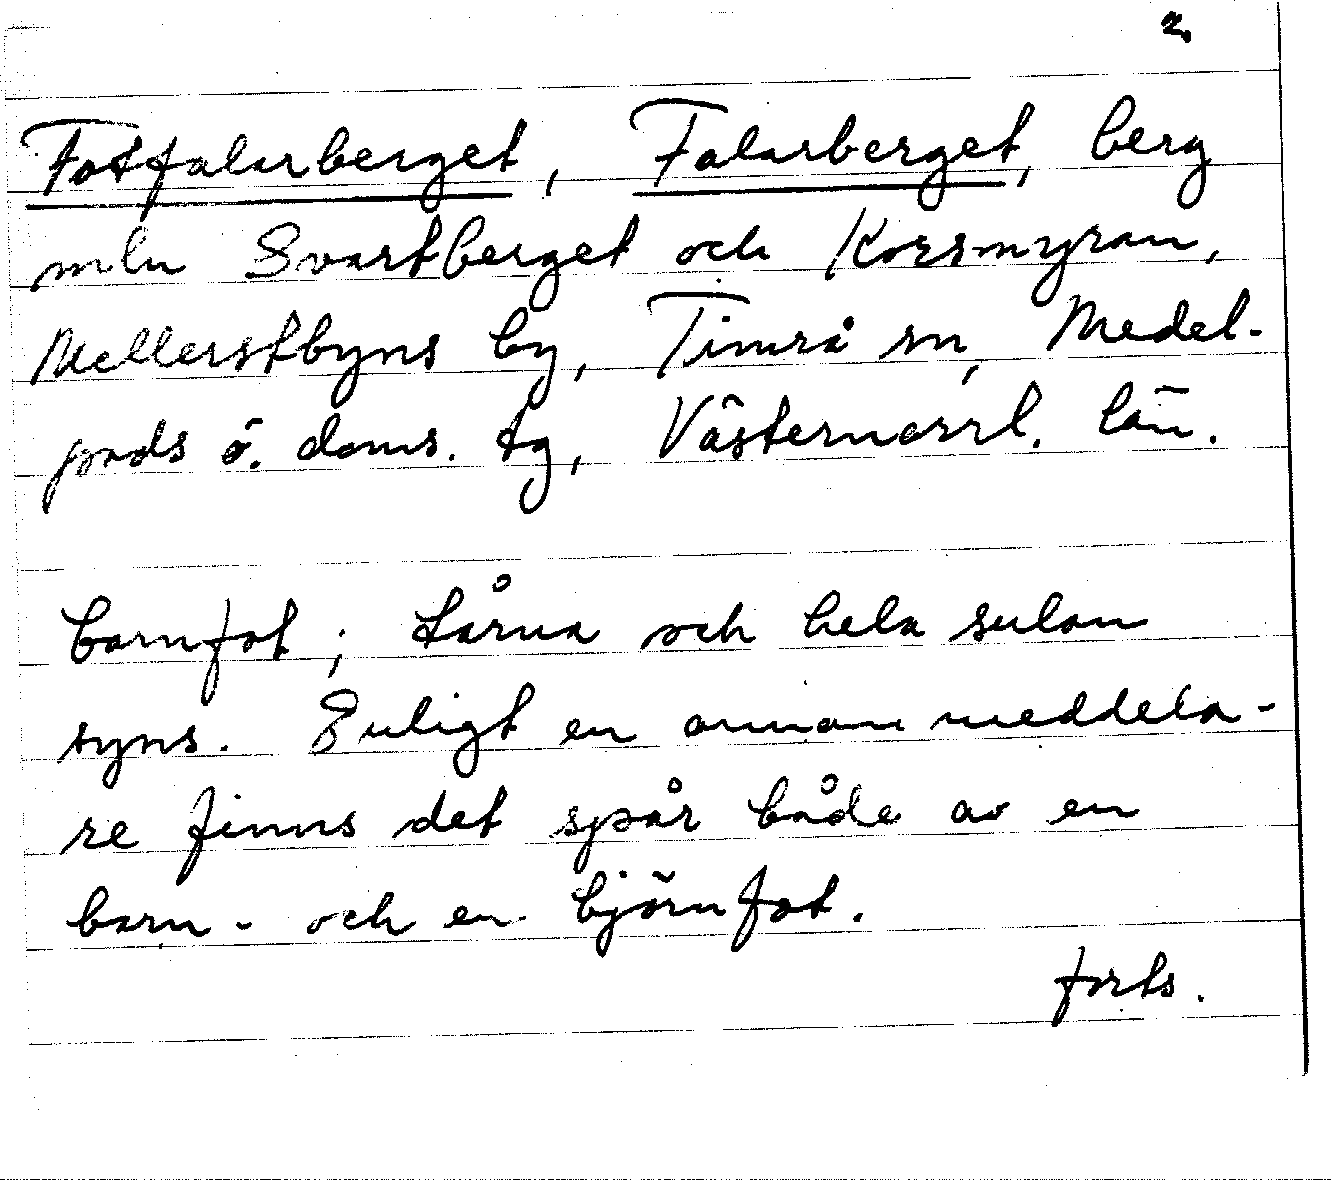 2.
Fotfalarberget, Falarberget, berg
mln Svartberget och Korsmyran,
Mellerstbyns by, Timrå sn, Medel-
pads ö. doms. tg, Västernorrl. län.
barnfot; tårna och hela sulan
syns. Enligt en annan meddela-
re finns det spår både av en
barn- och en björnfot.
forts.